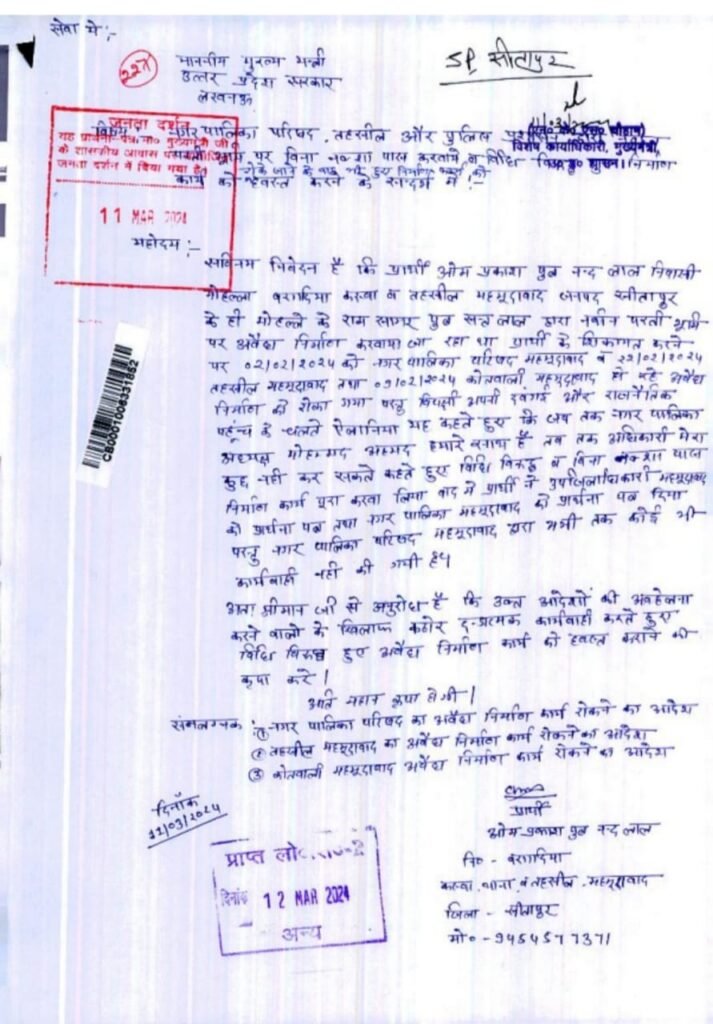 सेवा में :-
227
माननीय मुख्य मन्त्री
उत्तर प्रदेश सरकार
लखनऊ
SP सीतापुर
जनता दर्शन
यह प्रार्थना-पत्र मा० मुख्यमंत्री जी
के शासकीय आवास पर
जनता दर्शन में दिया गया है।
11 MAR 2024
विशेष कार्याधिकारी, मुख्यमंत्री,
उ० प्र० शासन।
विषय नगर पालिका परिषद, तहसील और पुलिस
भूमि पर बिना नक्शा पास करवाये व विधि निर्माण
रोके जाने के बाद भी हुए निर्माण
कार्य को ध्वस्त करने के सन्दर्भ में :-
महोदय :-
सविनय निवेदन है कि प्रार्थी ओम प्रकाश पुत्र नन्द लाल निवासी
मोहल्ला बरगदिया कस्बा व तहसील महमूदाबाद जनपद सीतापुर
के ही मोहल्ले के राम सागर पुत्र सन्त लाल द्वारा नवीन परती भूमि
पर अवैध निर्माण करवाया जा रहा था प्रार्थी के शिकायत करने
पर 02/02/2024 को नगर पालिका परिषद महमूदाबाद व 22/02/2024
तहसील महमूदाबाद तथा 09/02/2024 कोतवाली महमूदाबाद हो रहे अवैध
निर्माण को रोका गया परन्तु विपक्षी अपनी दबंगई और राजनैतिक
पहुंच के चलते ऐलानिया यह कहते हुए कि जब तक नगर पालिका
अध्यक्ष मोहम्मद अहमद हमारे साथ है तब तक अधिकारी मेरा
कुछ नही कर सकते कहते हुए विधि विरूद्ध व बिना नक्शा पास
निर्माण कार्य पूरा करवा लिया बाद में प्रार्थी ने उपजिलाधिकारी महमूदाबाद
को प्रार्थना पत्र तथा नगर पालिका महमूदाबाद को प्रार्थना पत्र दिया
परन्तु नगर पालिका परिषद महमूदाबाद द्वारा अभी तक कोई भी
कार्यवाही नही की गयी है।
अतः श्रीमान जी से अनुरोध है कि उक्त आदेशों की अवहेलना
करने वालो के खिलाफ कठोर दण्डात्मक कार्यवाही करते हुए
विधि विरूद्ध हुए अवैध निर्माण कार्य को ध्वस्त कराने की
कृपा करे।
अति महान कृपा होगी।
संलग्नक :- ① नगर पालिका परिषद का अवैध निर्माण कार्य रोकने का आदेश
② तहसील महमूदाबाद का अवैध निर्माण कार्य रोकने का आदेश
③ कोतवाली महमूदाबाद अवैध निर्माण कार्य रोकने का आदेश
CB0001006331852
दिनाँक
11/03/2024
प्रार्थी
ओम प्रकाश पुत्र नन्द लाल
नि० - बरगदिया
कस्बा, थाना व तहसील, महमूदाबाद
जिला - सीतापुर
मो० - 9454577371
प्राप्त लो०शि०-2
दिनांक 12 MAR 2024
अन्य